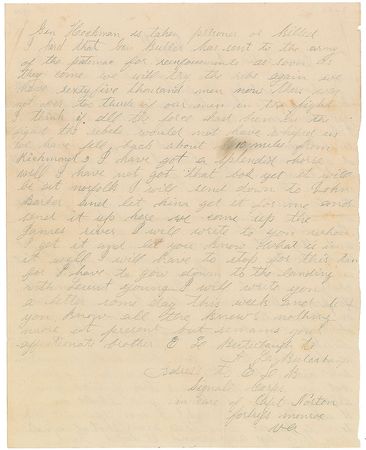 Gen Heckman is taken prisoner or killed
I herd that Gen Butler has sent to the army
of the potomac for reinforcements as soon as
they come we will try the rebs again we
have sixty five thousand men now there was
not over two thirds of our men in the fight
I think if all the force had been in the
fight the rebels would not have whiped us
we have fell back about 10 miles from
Richmond I have got a splendid horse
well I have not got that box yet it will
be at norfolk I will send down to John
Barker and let him get it for me and
send it up here we come up the
James river I will write to you when
I get it and let you know what is in
it well I will have to stop for this time
for I have to go down to the landing
with Lieut Young I will write you
a letter some day this week and let
you know all the knews nothing
more at present but remains your
affectionate brother E L
Address to E L B
Signal Corps
in care of Capt Norton
fortress monroe
Va